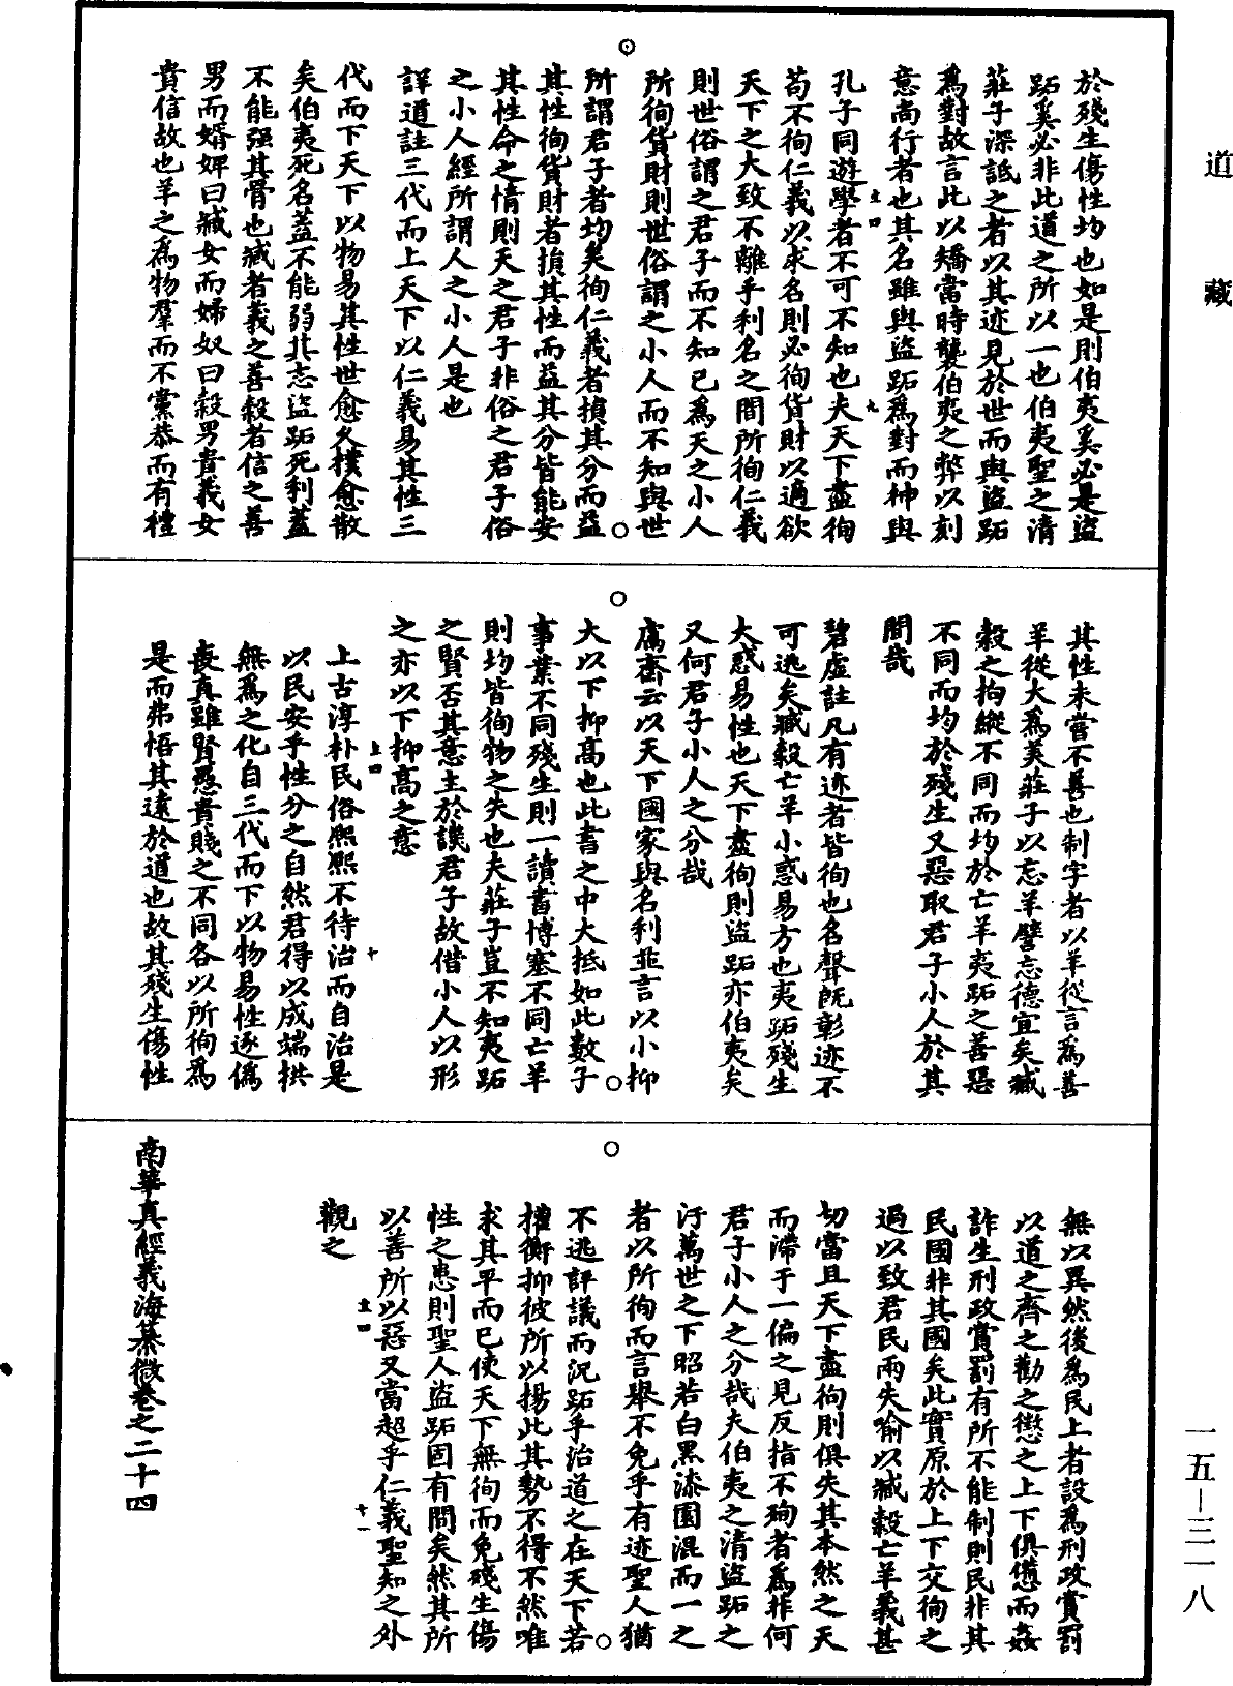 道藏
於殘生傷性均也如是則伯夷奚必是盜
跖奚必非此道之所以一也伯夷聖之清
莊子深詆之者以其迹見於世而與盜跖
爲對故言此以矯當時襲伯夷之弊以刻
意尚行者也其名雖與盜跖爲對而神與
孔子同遊學者不可不知也夫天下盡徇
苟不徇仁義以求名則必徇貨財以適欲
天下之大致不離乎利名之間所徇仁義
則世俗謂之君子而不知已爲天之小人
所徇貨財則世俗謂之小人而不知與世
所謂君子者均矣徇仁義者損其分而益
其性徇貨財者損其性而益其分皆能安
其性命之情則天之君子非俗之君子俗
之小人經所謂人之小人是也
詳道註三代而上天下以仁義易其性三
代而下天下以物易其性世愈久樸愈散
矣伯夷死名蓋不能弱其志盜跖死利蓋
不能强其骨也臧者義之善榖者信之善
男而婿婢曰臧女而婦奴曰榖男貴義女
貴信故也羊之爲物羣而不黨恭而有禮
其性未嘗不善也制字者以羊從言爲善
羊從大爲美莊子以忘羊譬忘德宜矣臧
榖之拘縱不同而均於亡羊夷跖之善惡
不同而均於殘生又惡取君子小人於其
間哉
碧虛註凡有迹者皆徇也名聲旣彰迹不
可逃矣臧榖亡羊小惑易方也夷跖殘生
大惑易性也天下盡徇則盜跖亦伯夷矣
又何君子小人之分哉
鬳齋云以天下國家與名利並言以小抑
大以下抑高也此書之中大抵如此數子
事業不同殘生則一讀書博塞不同亡羊
則均皆徇物之失也夫莊子豈不知夷跖
之賢否其意主於譏君子故借小人以形
之亦以下抑高之意
上古淳朴民俗熙熙不待治而自治是
以民安乎性分之自然君得以成端拱
無爲之化自三代而下以物易性逐僞
喪真雖賢愚貴賤之不同各以所徇爲
是而弗悟其遠於道也故其殘生傷性
無以異然後爲民上者設爲刑政賞罰
以道之齊之勸之懲之上下俱憊而姦
詐生刑政賞罰有所不能制則民非其
民國非其國矣此實原於上下交徇之
過以致君民兩失喻以臧榖亡羊義甚
切當且天下盡徇則俱失其本然之天
而滯于一偏之見反指不殉者爲非何
君子小人之分哉夫伯夷之清盜跖之
汙萬世之下昭若白黑漆園混而一之
者以所徇而言舉不免乎有迹聖人猶
不逃評議而況跖乎治道之在天下若
權衡抑彼所以揚此其勢不得不然唯
求其平而已使天下無徇而免殘生傷
性之患則聖人盜跖固有間矣然其所
以善所以惡又當超乎仁義聖知之外
觀之
南華真經義海纂微卷之二十四
一五—三一八